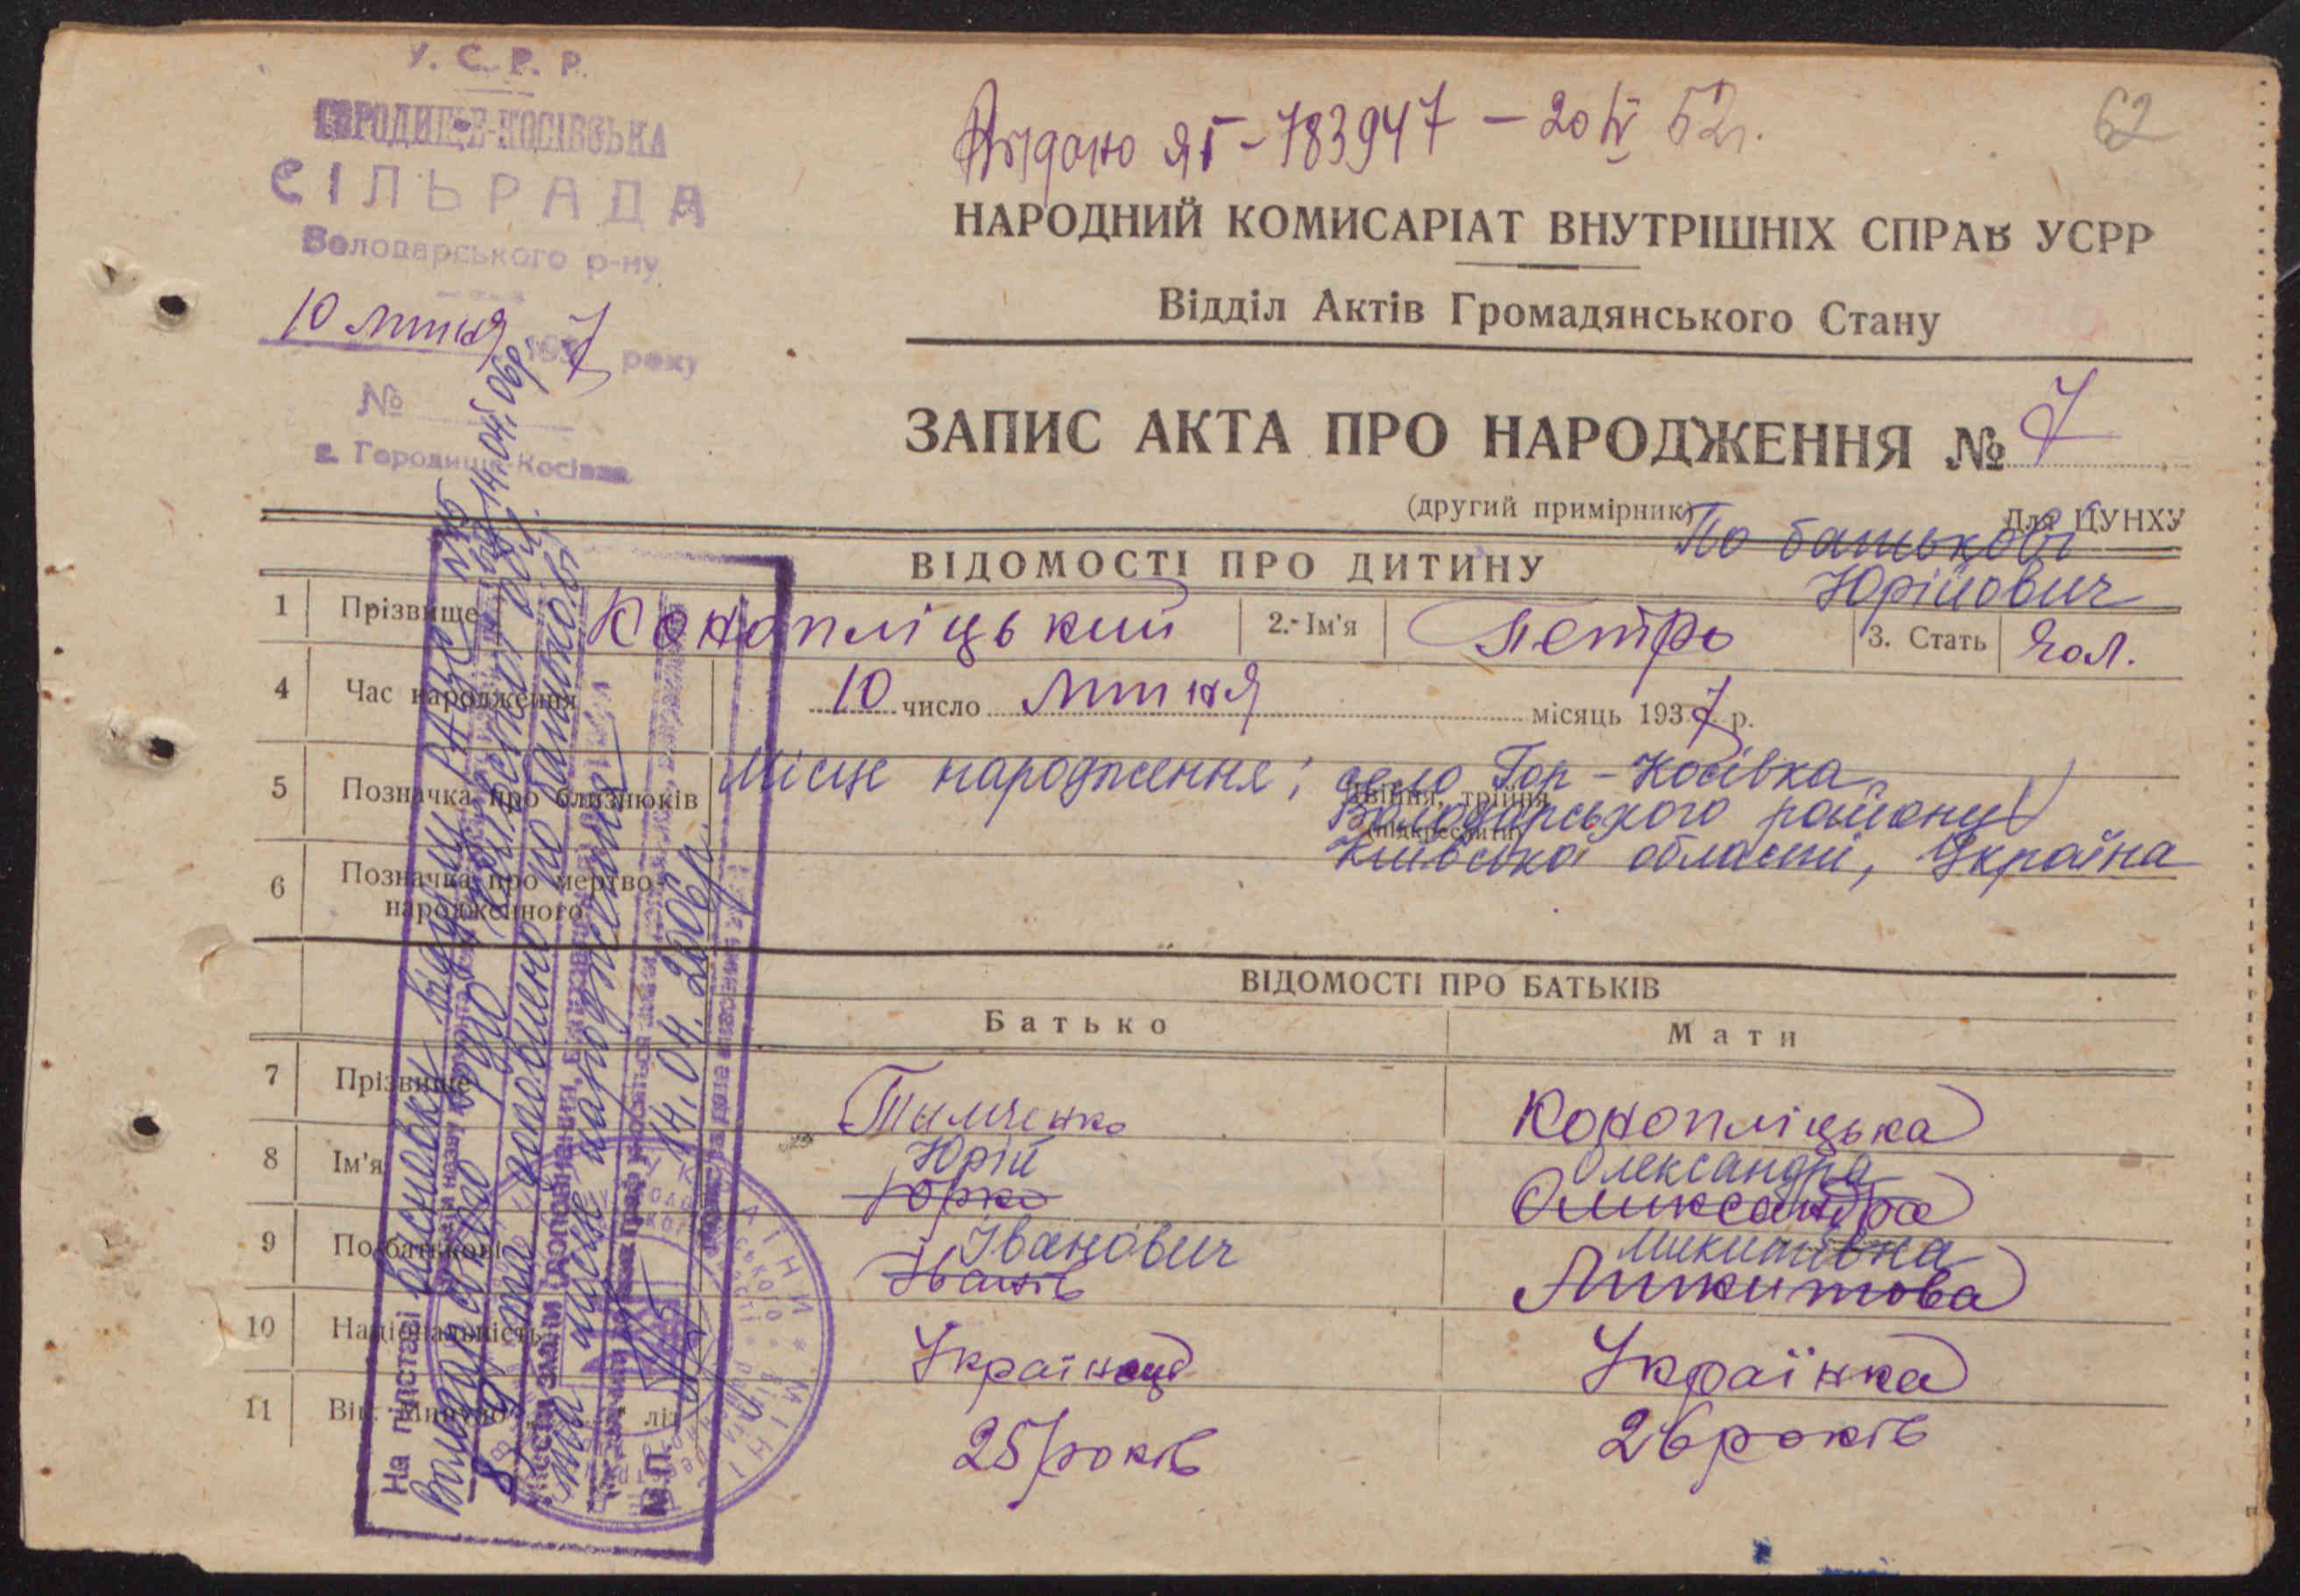 У. С. Р. Р.
ГОРОДИЩЕ-КОСІВСЬКА
СІЛЬРАДА
Володарського р-ну
10 лютня 1937 року
№
с. Городище-Косівка
Видано ЯБ-783947 - 20 IV 52р.
62
НАРОДНИЙ КОМИСАРІАТ ВНУТРІШНІХ СПРАВ УСРР
Відділ Актів Громадянського Стану
ЗАПИС АКТА ПРО НАРОДЖЕННЯ № 7
(другий примірник)
Для ЦУНХУ
По батькові
Юрійович
ВІДОМОСТІ ПРО ДИТИНУ
1 Прізвище Конопліцький 2. Ім'я Петро 3. Стать Чол.
4 Час народження 10 число лютня місяць 1937 р.
Місце народження: село Гор-Косівка
5 Позначка про близнюків Двійня, трійня
(підкреслити)
Володарського району
Київської області, Україна
6 Позначка про мертво-
народженного
ВІДОМОСТІ ПРО БАТЬКІВ
Батько Мати
7 Прізвище Тимченко Конопліцька
Юрій Олександра
8 Ім'я Юрко Олександра
Іванович Микитівна
9 По батькові Іванів Микитова
10 Національність Українець Українка
11 Вік: Минуло „ " літ 25 років 26 років
На підставі висновку відділу РАЦС №5
14.04.06р.
доповнено по батькові
та місце народження
14.04.2006р.
М.П.